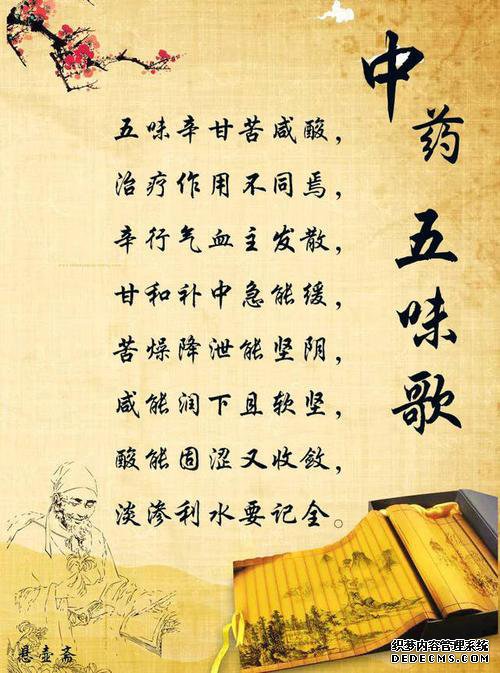 中药五味歌
五味辛甘苦咸酸，
治疗作用不同焉，
辛行气血主发散，
甘和补中急能缓，
苦燥降泄能坚阴，
咸能润下且软坚，
酸能固涩又收敛，
淡渗利水要记全。
悬壶斋
织梦内容管理系统
DEDECMS.COM